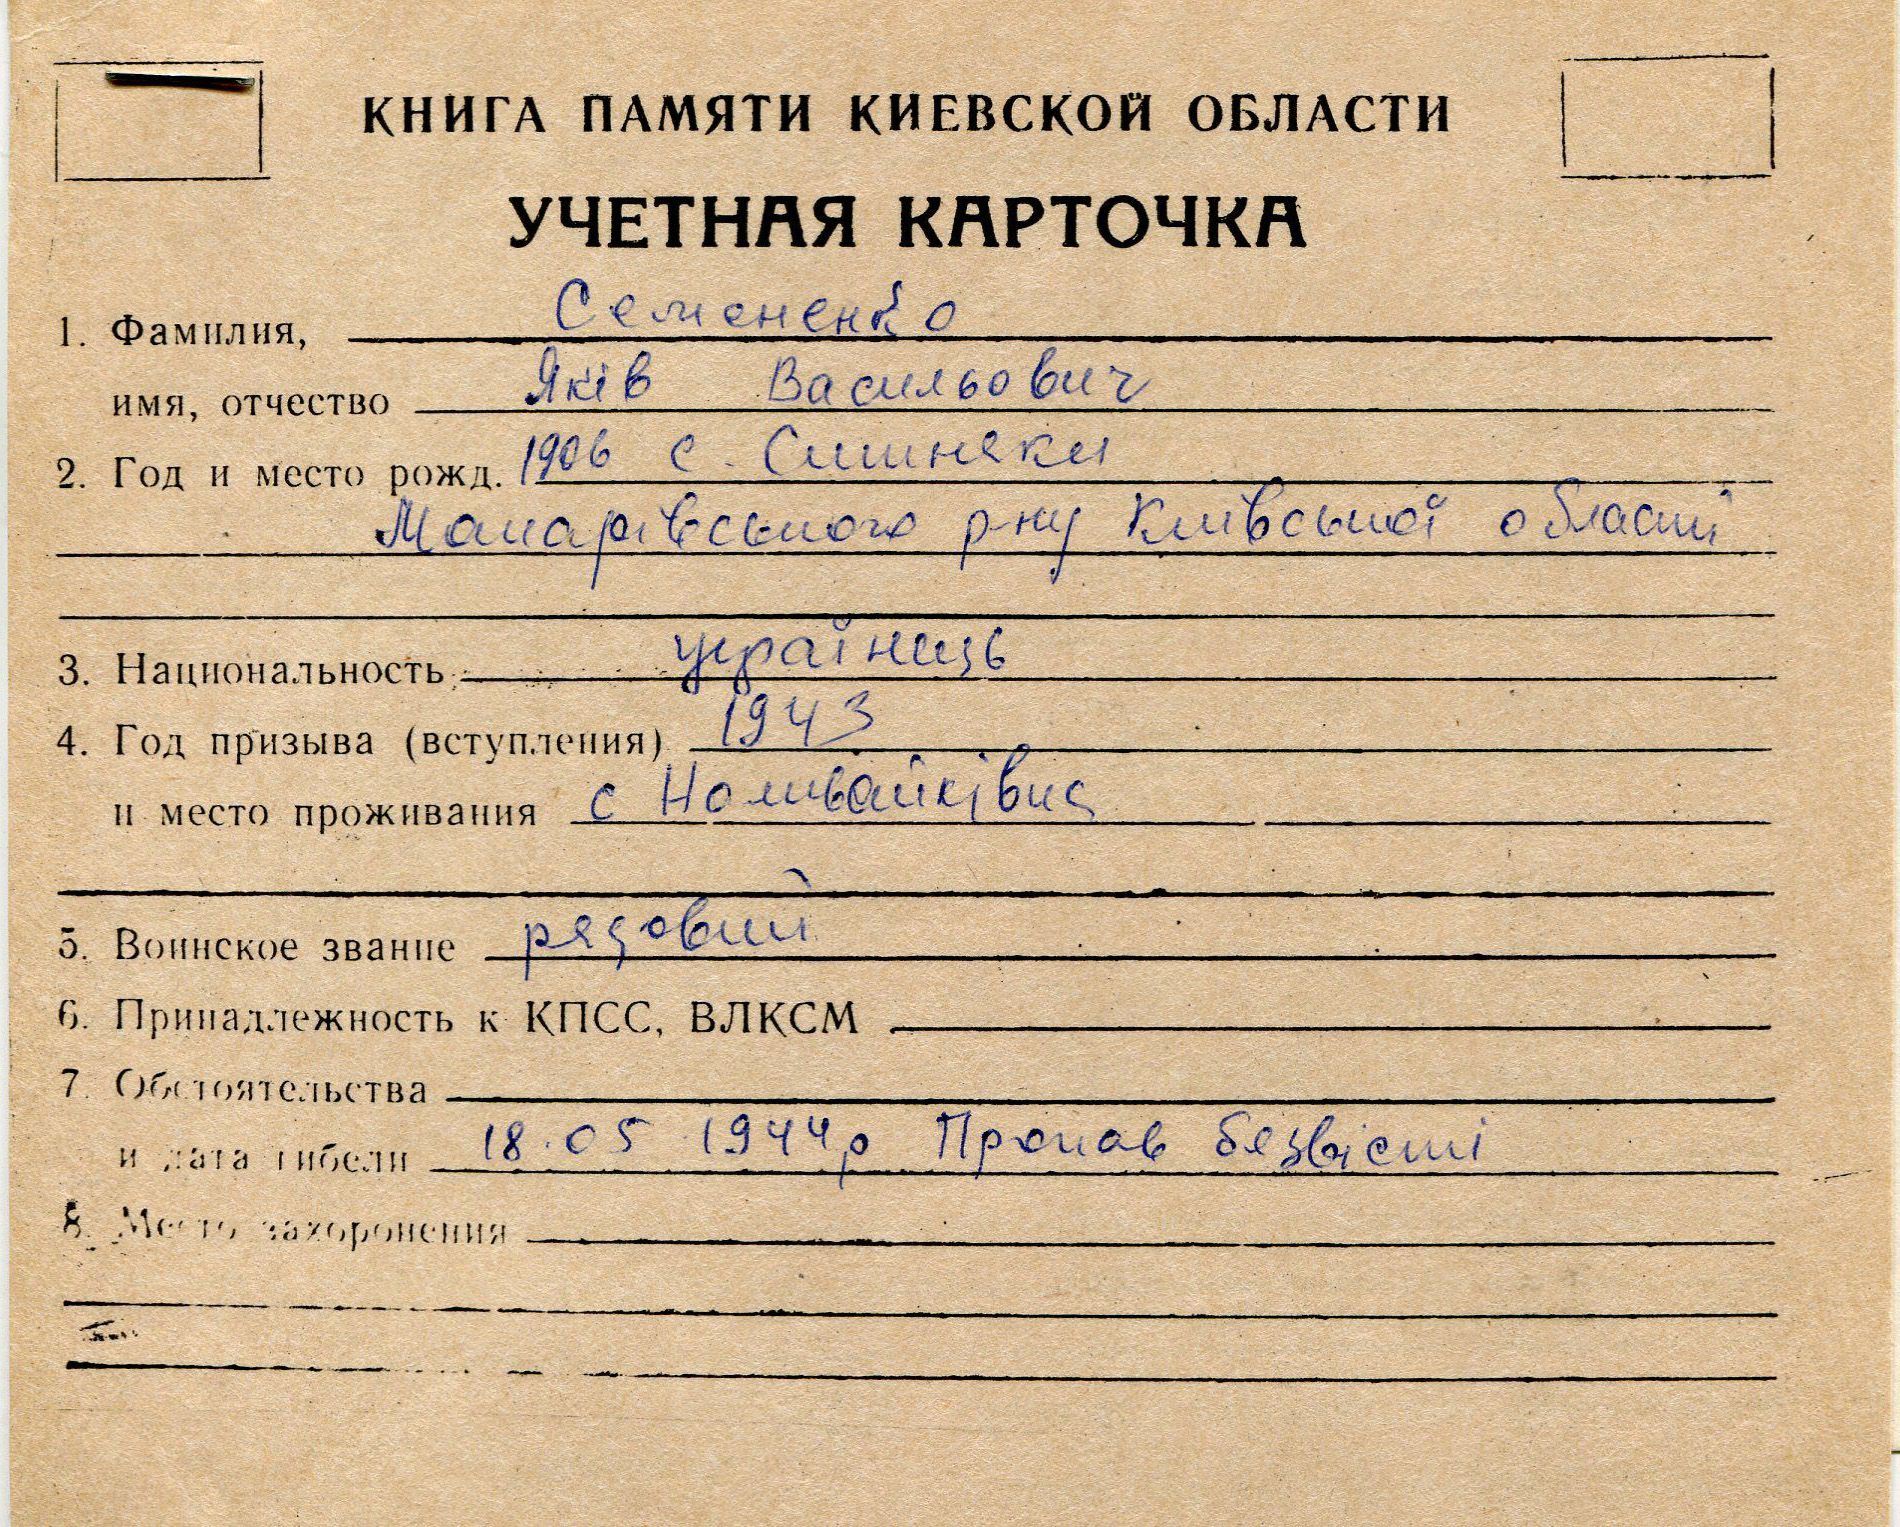 КНИГА ПАМЯТИ КИЕВСКОЙ ОБЛАСТИ
УЧЕТНАЯ КАРТОЧКА
1. Фамилия, Семененко
имя, отчество Яків Васильович
2. Год и место рожд. 1906 с. Ситняки
Макарівського р-ну Київської області
3. Национальность українець
4. Год призыва (вступления) 1943
и место проживания с Наливайківка
5. Воинское звание рядовий
6. Принадлежность к КПСС, ВЛКСМ
7. Обстоятельства
и дата гибели 18.05 1944р Пропав безвісті
8. Место захоронения